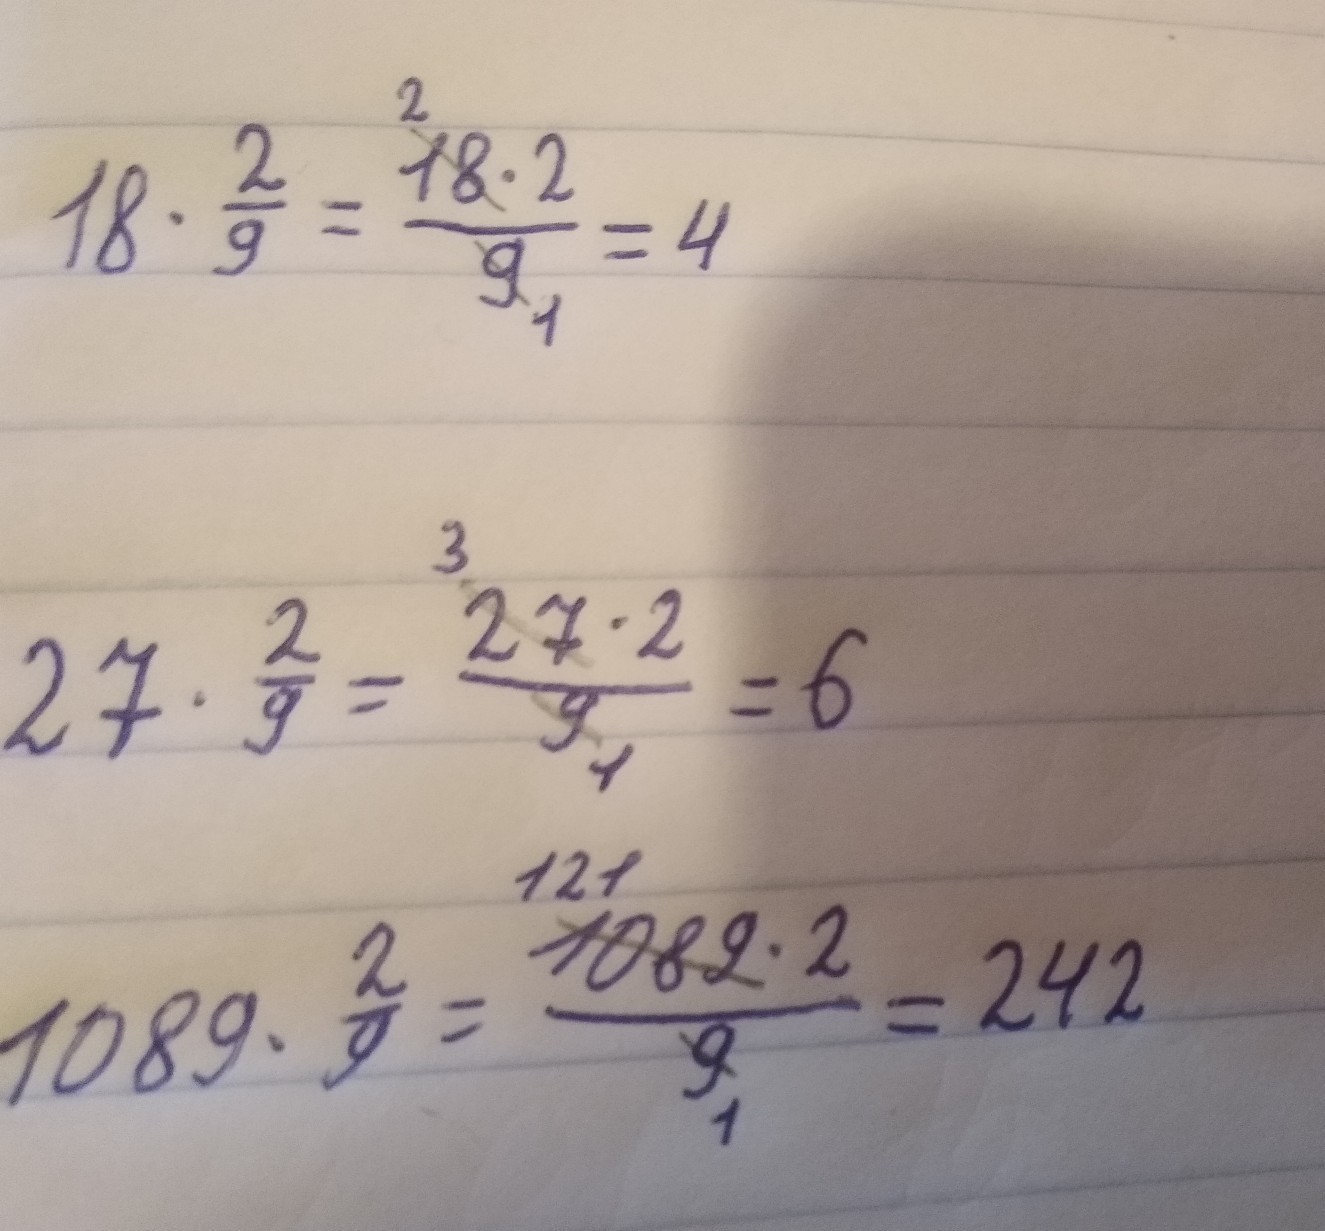 18 · 2/9 = (²18 · 2)/(9₁) = 4
27 · 2/9 = (³27 · 2)/(9₁) = 6
1089 · 2/9 = (¹²¹1089 · 2)/(9₁) = 242